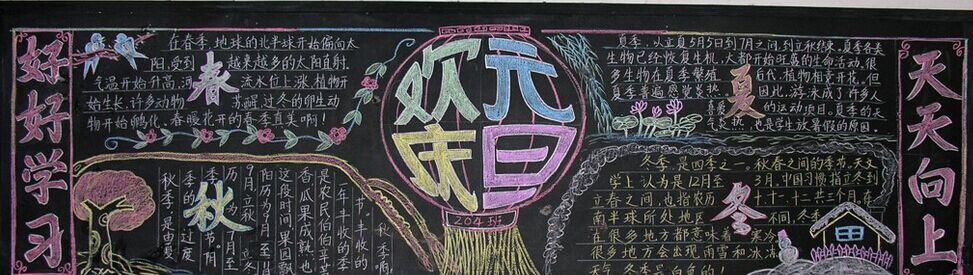 好好学习
在春季,地球的北半球开始偏向太
阳,受到越来越多的太阳直射,
气温开始升高,河流水位上涨,植物开
始生长,许多动物苏醒,过冬的卵生动
物开始孵化,春暖花开的春季真美啊!
春
欢庆
元旦
204班
夏季,从立夏5月5日到7月之间,到立秋结束,夏季各类
生物已经恢复生机,大都开始旺盛的生命活动,很
多生物在夏季繁殖后代,植物相竞开花,但
夏季普遍感觉炎热,因此,游泳成了许多人
喜爱的运动项目。夏季的天
气炎热,也是学生放暑假的原因。
夏
天天向上
秋季啊,
节。丰收的季
一年丰收的季
是农民伯伯丰
香瓜果成熟,也
这段时间果园飘
阳历为9月至11月
9月,立秋
历为
季的
季节,阴
过度
季是由夏
秋季
秋
冬季,是四季之一,秋春之间的季节,天文
学上认为是12月至3月,中国习惯指立冬到
立春之间,也指农历十、十一、十二共三个月,在
南半球所处地区不同,冬季
在很多地方都意味着寒冷
很多地方会出现雨雪和冰冻
天气,冬季是白色的!
冬